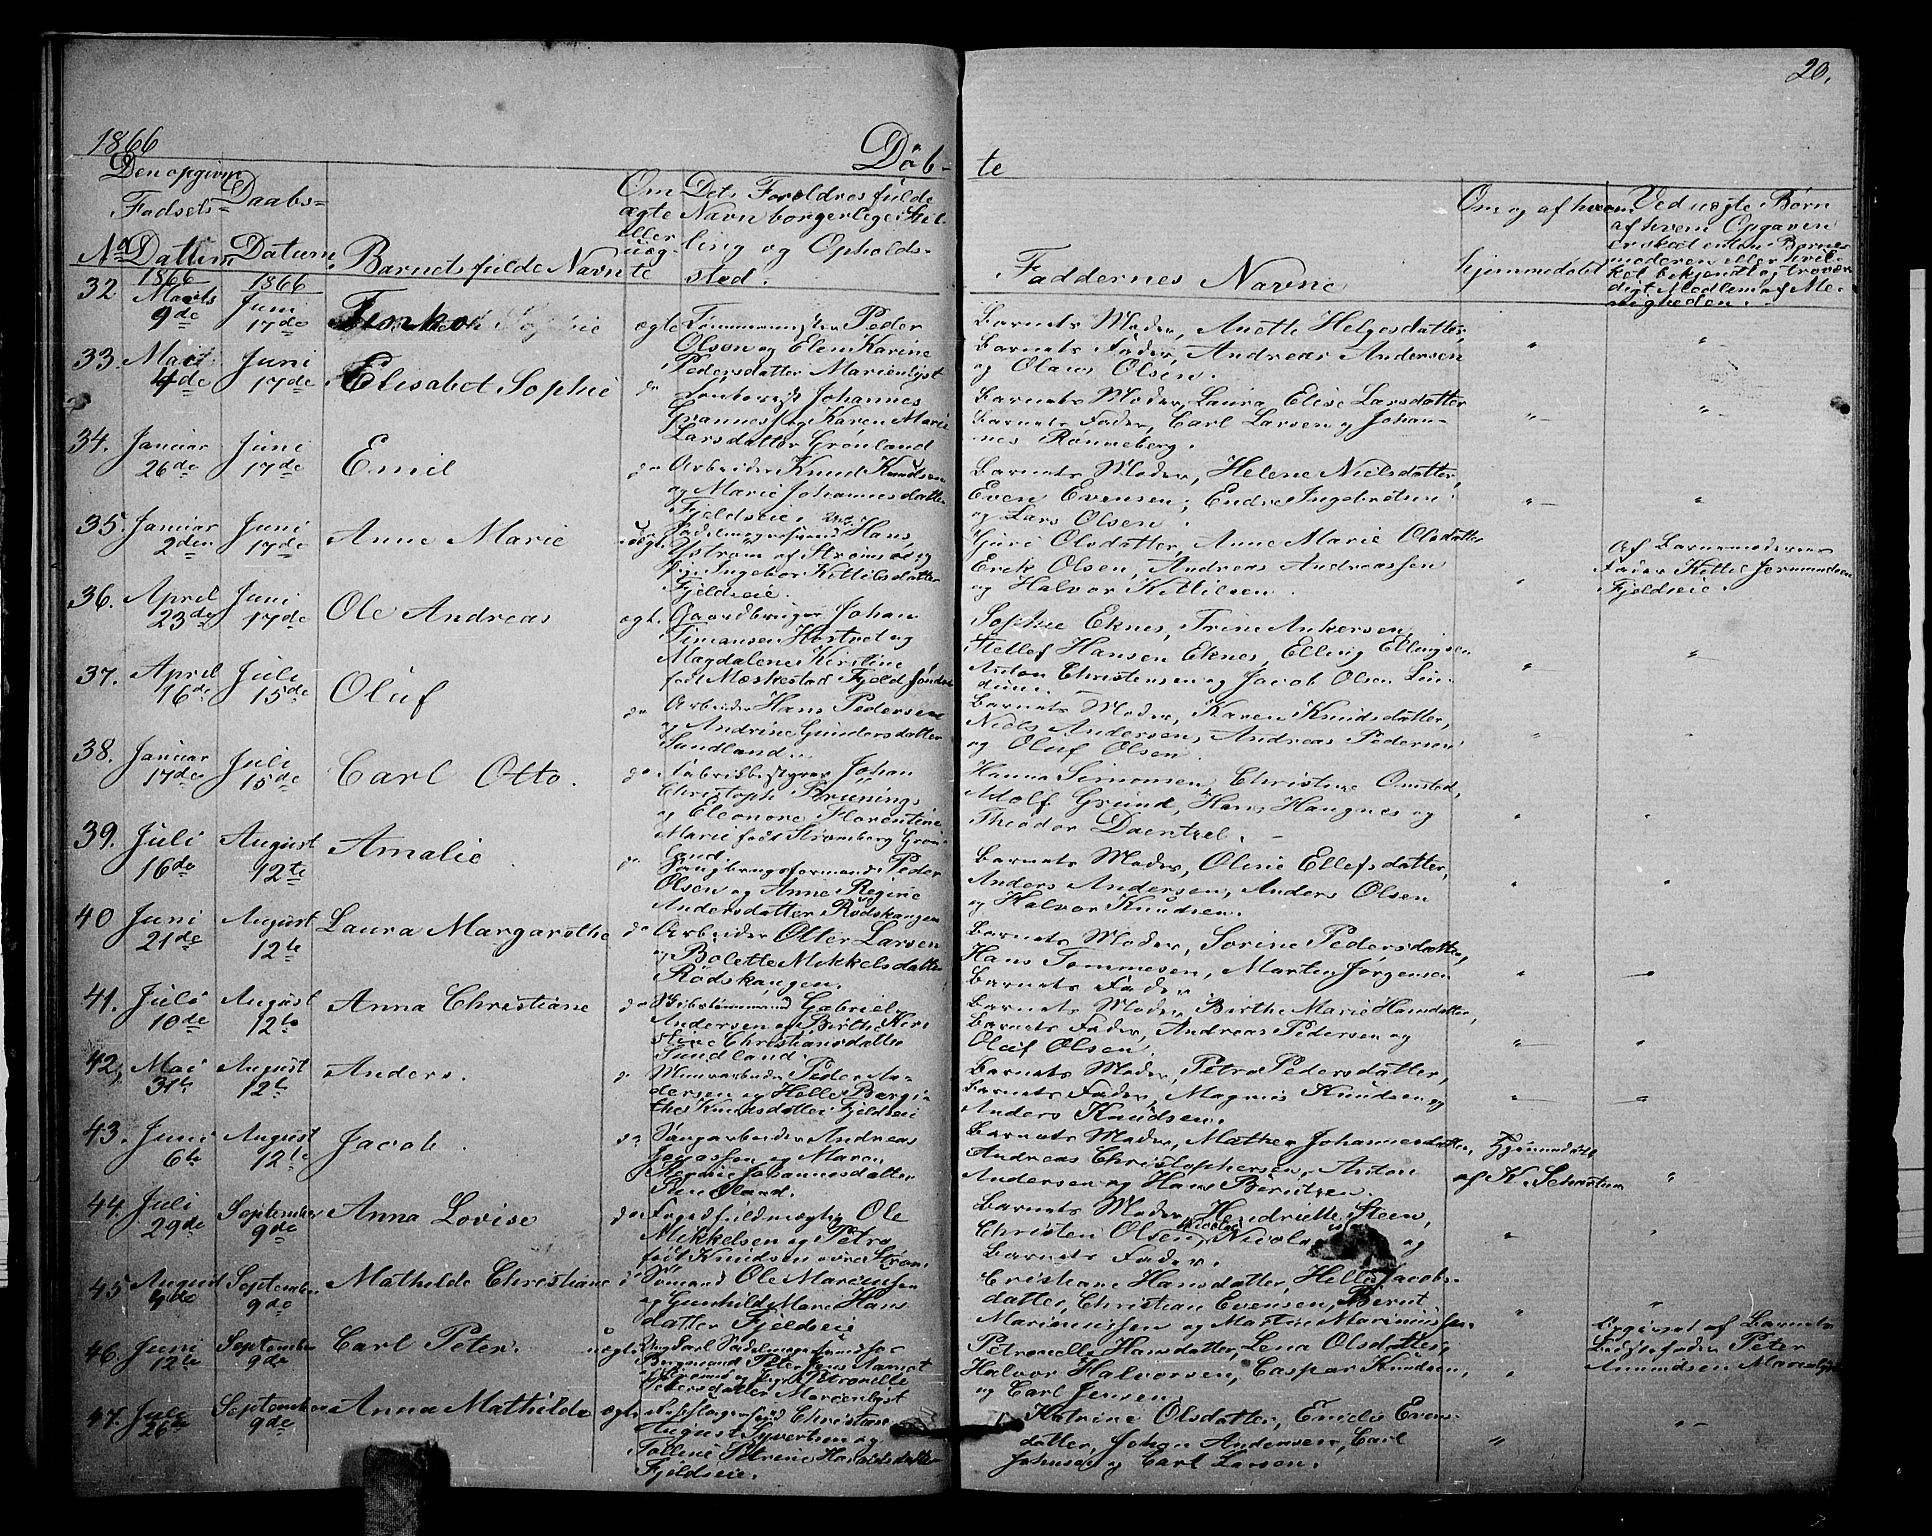 20.
1866
Döb-
te
Den opgivne
Fødsels-
Datum
Daabs-
Datum
No
Barnets fulde Navn
Om
ægte
eller
uæg-
te
Dets Forældres fulde
Navn borgerlige Stil-
ling og Opholds-
sted.
Faddernes Navne
Om og af hvem
hjemmedøbt
Ved uægte Børn
af hvem Opgaven
er skeet enten Barne-
moderen eller hvil-
ket bekjendt og trovær-
digt Medlem af Me-
nigheden.
1866
1866
32
Marts
9de
Juni
17de
ægte
Peder
Olsen og Elen Karine
Pedersdatter Marienlyst
Barnets Moder, Anette Helgesdatter,
Barnets Fader, Andreas Andersen
og Olaus Olsen.
33.
4de
Juni
17de
Elisabet Sophie
do
Johannes
Karen Marie
Larsdatter Grønland
Barnets Moder, Laura Elise Larsdatter
Barnets Fader, Carl Larsen og Johan-
nes Rønneberg.
34.
Januar
26de
Juni
17de
Emil
do
Arbeider Knud Knudsen
og Marie Johannesdatter
Fjeldseie.
Barnets Moder, Helene Nielsdatter,
Even Evensen, Endre Ingebretsen
og Lars Olsen.
35.
Januar
2den
Juni
17de
Anne Marie
uægte
Hans
af Strømsø og
Pige Ingebor Kittilsdatter
Fjeldseie.
Guri Olsdatter, Anne Marie Olsdatter
Erek Olsen, Andreas Andreassen
og Halvor Kittilsen.
Af Barnemoderens
Fader Kittil Jermundsen
Fjeldseie.
36.
April
23de
Juni
17de
Ole Andreas
ægt.
Gaardbruger Johan
Simensen Horstvet og
Magdalene Kirstine
født Mæskestad Fjeld
Sophie Eknes, Trine Ankersen,
Stellef Hansen Eknes, Elling Ellingsen
Anton Christensen og Jacob Olsen Lin-
dum.
37.
April
16de
Juli
15de
Oluf
do
Arbeider Hans Pedersen
og Andrine Gundersdatter
Sundland.
Barnets Moder, Karen Knudsdatter,
Niels Andersen, Andreas Pedersen
og Oluf Olsen.
38.
Januar
17de
Juli
15de
Carl Otto.
do
Fabrikbestyrer Johan
Christoph Brunings
og Eleonore Florentine
Marie født Strømberg Grøn-
land.
Hanna Simonsen, Christine Omsted,
Adolf Grund, Hans Haugnes og
Theodor Daentzel.
39.
Juli
16de
August
12te
Amalie
do
Peder
Olsen og Anne Regine
Andersdatter Rødskaugen
Barnets Moder, Oline Ellefsdatter,
Anders Andersen, Anders Olsen
og Halvor Knudsen.
40
Juni
21de
August
12te
Laura Margarethe
do
Arbeider Otter Larsen
og Bolette Mikkelsdatter
Rødskaugen.
Barnets Moder, Sorine Pedersdatter,
Hans Tommesen, Marten Jørgensen
Barnets Fader
41.
Juli
10de
August
12te
Anna Christiane
do
Skibstømmermand Gabriel
Andersen og Birthe Kir-
stine Christiansdatter
Sundland.
Barnets Moder, Birthe Marie Hansdatter,
Barnets Fader, Andreas Pedersen og
Oluf Olsen.
42,
Mai
31te
August
12te
Anders.
do
Peder An-
dersen og Helle Bergi-
the Knudsdatter Fjeldseie
Barnets Moder, Petra Pedersdatter,
Barnets Fader, Magnus Knudsen og
Anders Knudsen.
43.
Juni
6te
August
12te
Jacob.
do
Saugarbeider Andreas
Jonassen og Maren
Johannesdatter
Sundland.
Barnets Moder, Mathea Johannesdatter,
Andreas Christophersen, Anton
Andersen og Hans Berntsen.
Hjemmedøbt
af K. Sebastian
44.
Juli
29de
September
9de
Anna Lovise
do
Fogedfuldmægtig Ole
Mikkelsen og Petra
født Knudsen øvre Strøm
Barnets Moder, Hendriette Steen,
Christen Olsen, Nicolai og
Barnets Fader.
45
August
September
9de
Mathilde Christiane
do
Sømand Ole Mariusen
og Gunhild Marie Hans
datter Fjeldseie
Cristiane Hansdatter, Helle Jacobs-
datter, Christian Evensen, Bernt
Mariniussen og Martin Mariniussen.
46
Juni
12te
September
9de
Carl Peter.
uægte
Petronelle
Petersdatter Marienlyst
Petronelle Hansdatter, Lena Olsdatter,
Halvor Halvorsen, Caspar Knudsen,
og Carl Jensen.
Opgivet af Barnets
Bedstefader Peter
Amundsen Marienlyst
47.
Juli
26de
September
9de
Anna Mathilde
ægte
Christian
August Syvertsen og
Petrine Haraldsdatter
Fjeldseie.
Katrine Olsdatter, Emilie Evens-
datter, Johan Andersen, Carl
Johnsen og Carl Larsen.